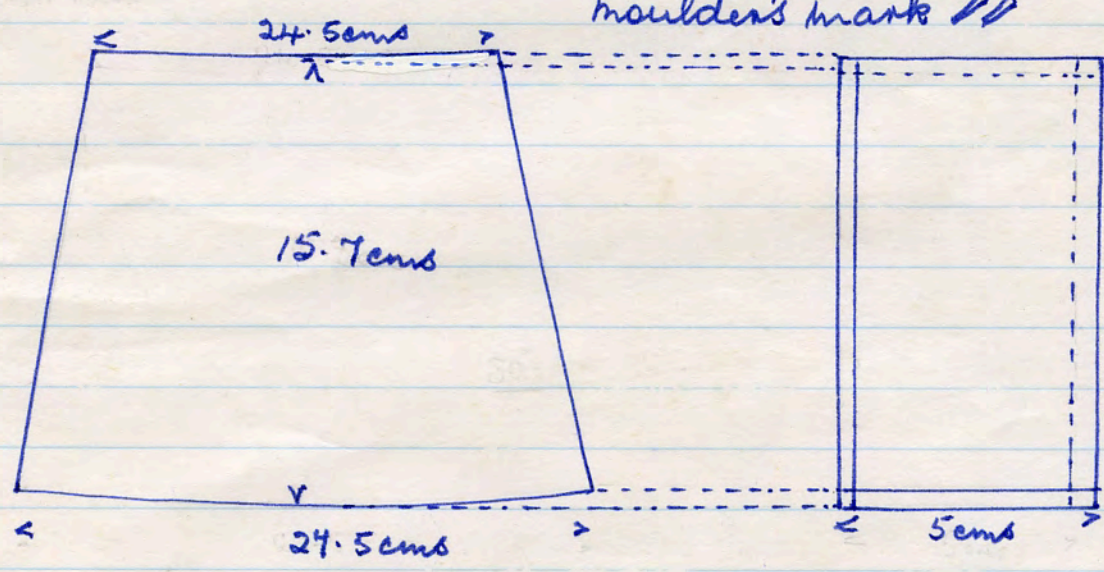 moulder's mark
24.5cms
15.7cms
24.5cms
5cms